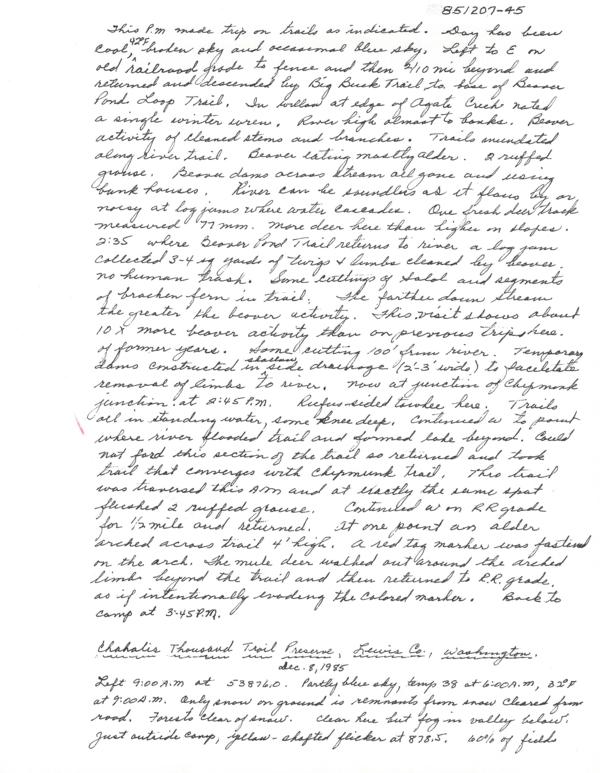 851207-45
This P.m made trip on trails as indicated. Day has been
cool, 42°F, broken sky and occasional blue sky. Left to E on
old railroad grade to fence and then 2/10 mi beyond and
returned and descended by Big Buck Trail to base of Beaver
Pond Loop Trail. In willow at edge of Agate Creek noted
a single winter wren. River high almost to banks. Beaver
activity of cleaned stems and branches. Trails inundated
along river trail. Beaver eating mostly alder. 2 ruffed
grouse. Beaver dams across stream all gone and using
bank houses. River can be soundless as it flows by or
noisy at log jams where water cascades. One fresh deer track
measured 77 mm. More deer here than higher on slopes.
2:35 where Beaver Pond Trail returns to river a log jam
collected 3-4 sq yards of twigs & limbs cleaned by beaver
no human trash. Some cuttings of salal and segments
of bracken fern in trail. The farther down stream
the greater the beaver activity. This visit shows about
10 X more beaver activity than on previous trips here.
of former years. Some cutting 100' from river. Temporary
dams constructed in shallow side drainage (2'-3' wide) to facilitate
removal of limbs to river. Now at junction of Chipmonk
junction at 2:45 P.M. Rufus-sided towhee here. Trails
all in standing water, some knee deep. Continued W to point
where river flooded trail and formed lake beyond. Could
not ford this section of the trail so returned and took
trail that converges with Chipmunk Trail. This trail
was traversed this AM and at exactly the same spot
flushed 2 ruffed grouse. Continued W on R.R grade
for 1/2 mile and returned. At one point an alder
arched across trail 4' high. A red tag marker was fastend
on the arch. The mule deer walked out around the arched
limb beyond the trail and then returned to R.R. grade,
as if intentionally evading the colored marker. Back to
camp at 3:45 P.M.
Chahalis Thousand Trail Preserve, Lewis Co., Washington.
Dec. 8, 1985
Left 9:00 A.M at 53876.0. Partly blue sky, temp 38 at 6:00 A.M, 32°F
at 9:00 A.M. Only snow on ground is remnants from snow cleared from
road. Forests clear of snow. Clear here but fog in valley below.
Just outside camp, yellow-shafted flicker at 878.5. 60% of fields